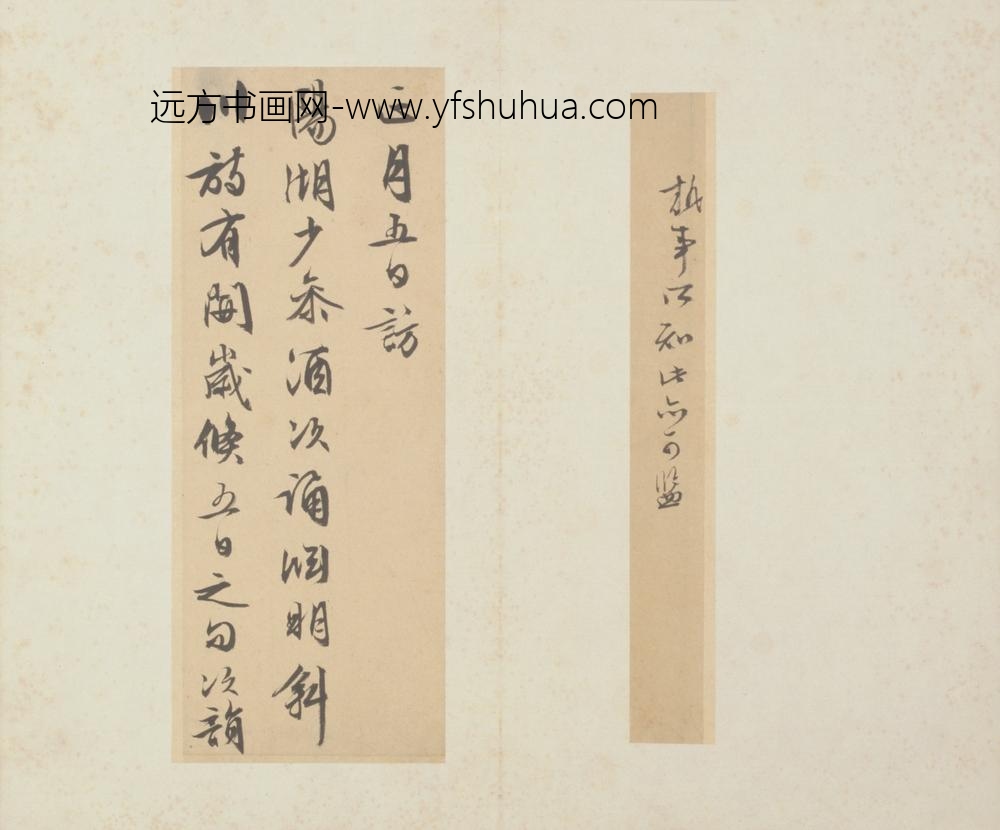 远方书画网-www.yfshuhua.com
事知此亦可監
正月五日訪
陽湖少參酒次誦淵明斜
川詩有開歲倏五日之句次韻